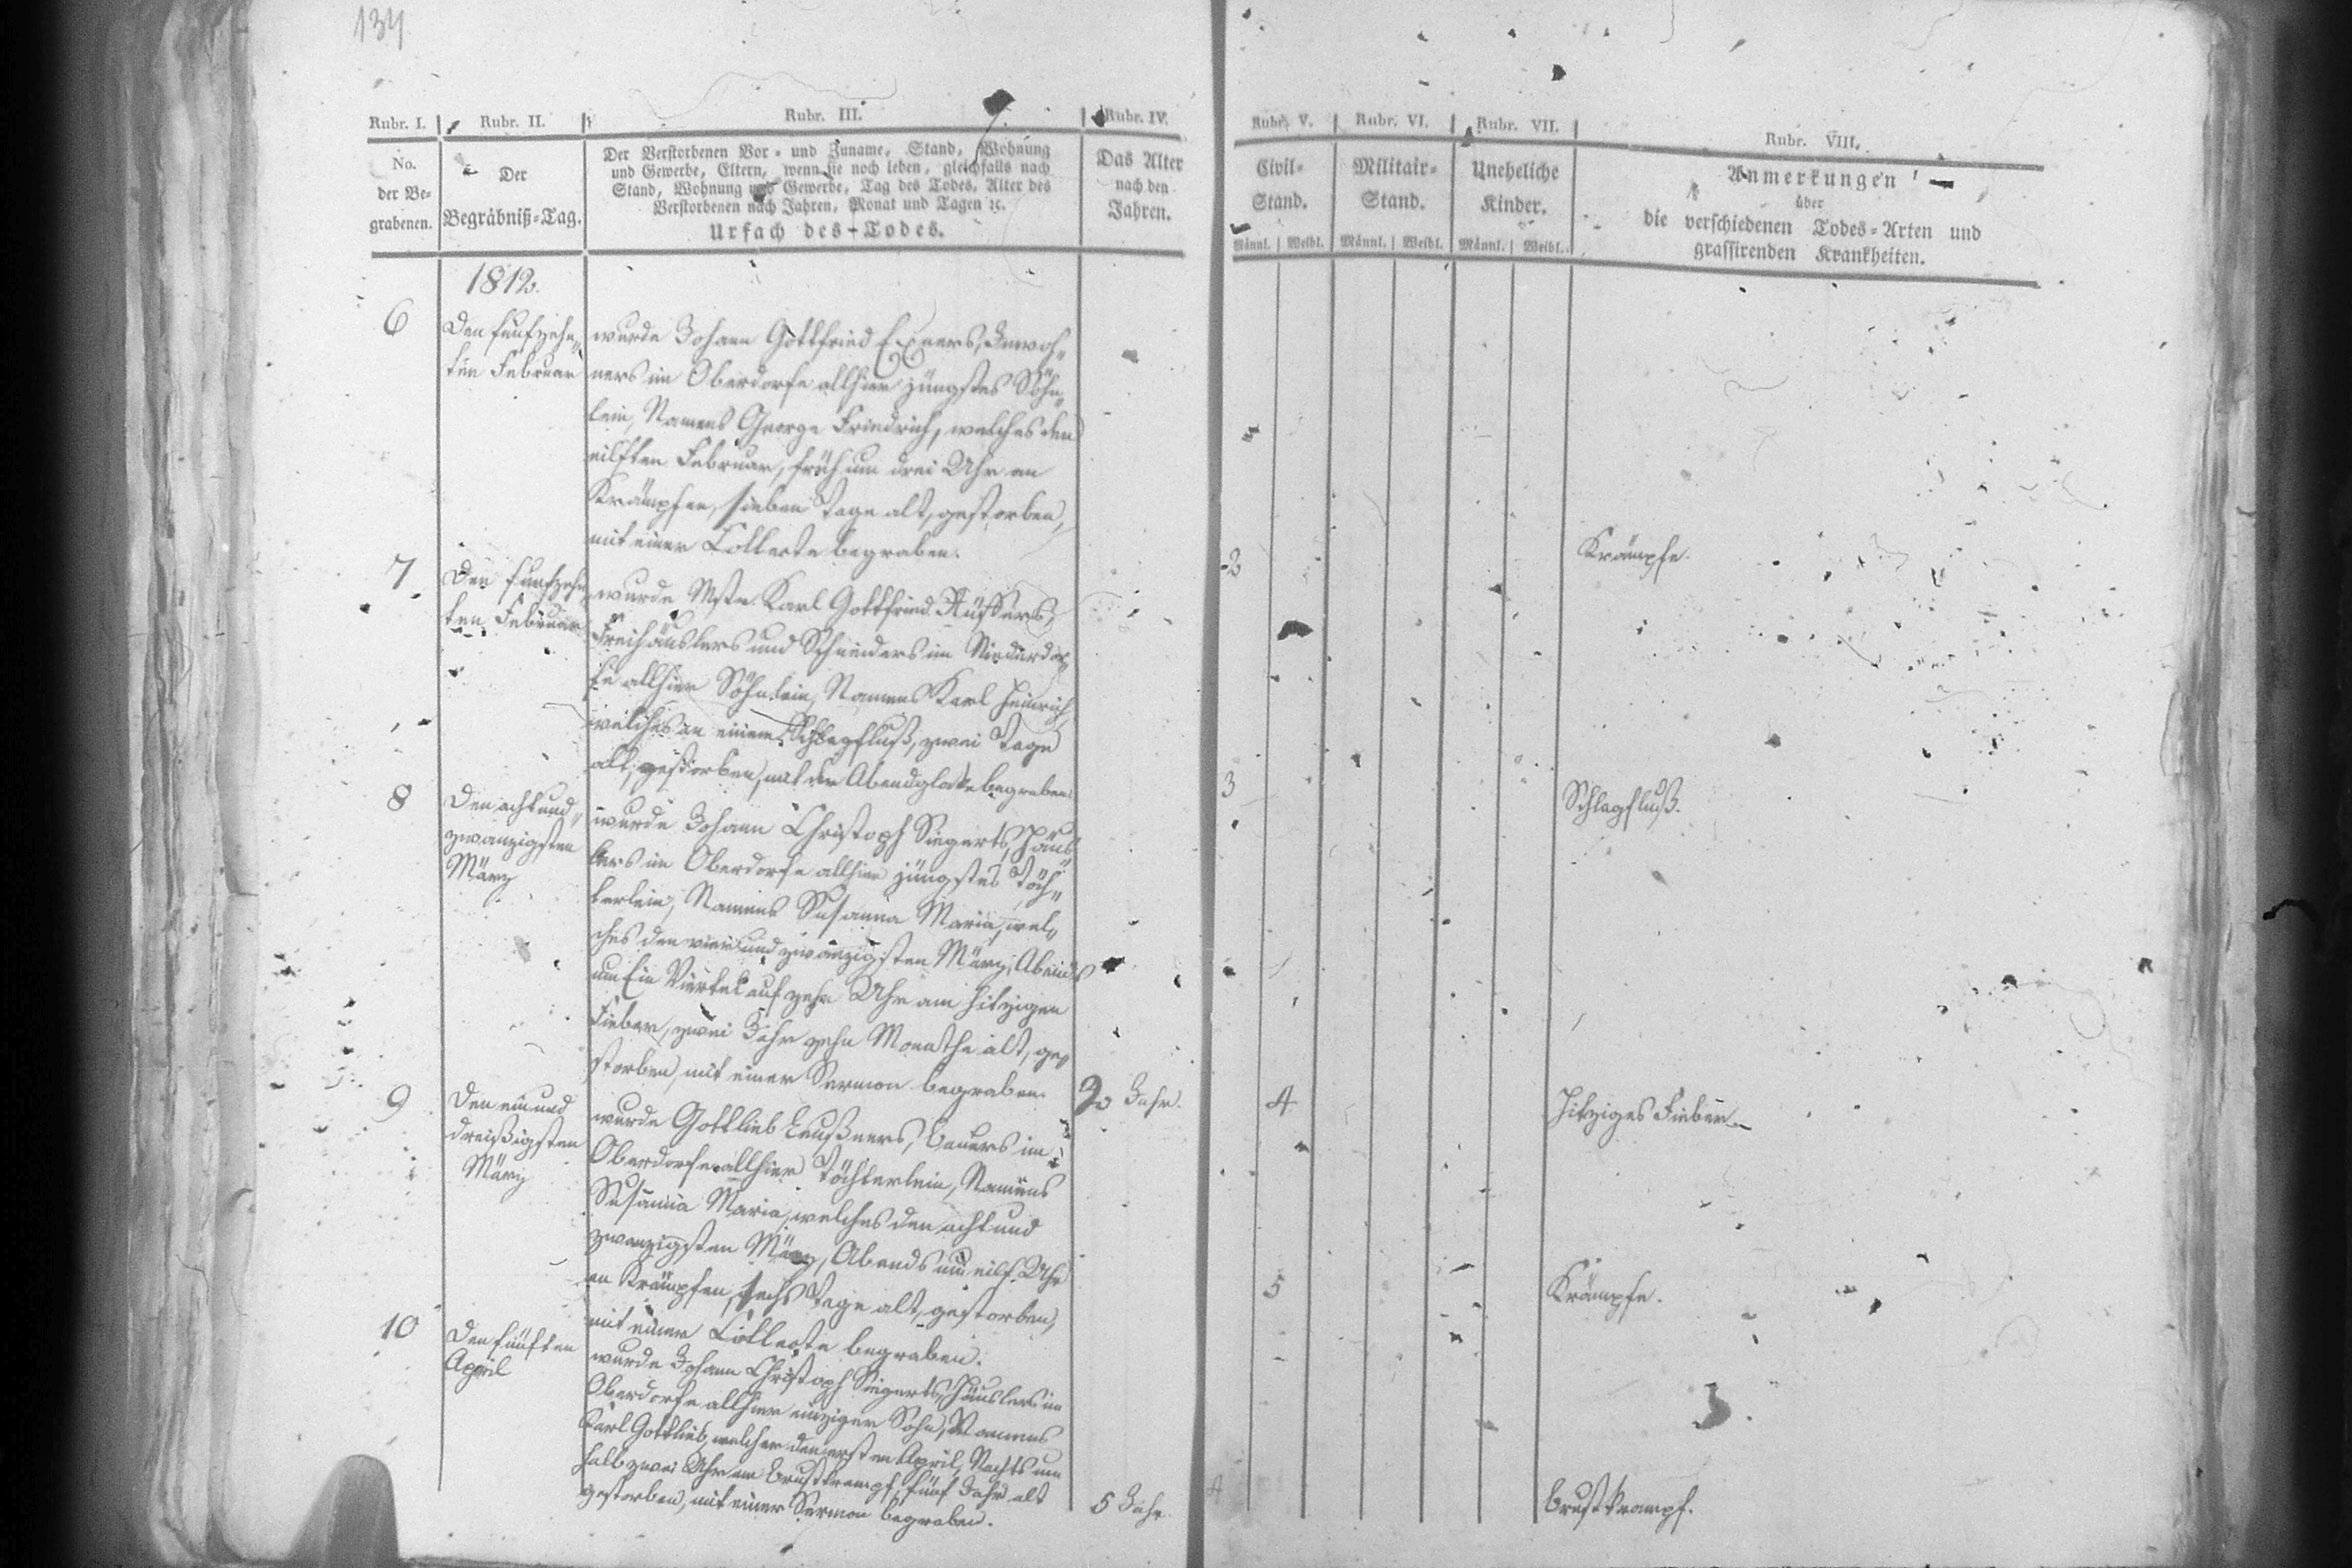 134
Rubr. I. Rubr. II. Rubr. III. Rubr. IV. Rubr. V. Rubr. VI. Rubr. VII. Rubr. VIII.
No.
der Be-
grabenen.
Der
Begräbniß-Tag.
Der Verstorbenen Vor- und Zuname, Stand, Wohnung
und Gewerbe, Eltern, wenn sie noch leben, gleichfalls nach
Stand, Wohnung und Gewerbe, Tag des Todes, Alter des
Verstorbenen nach Jahren, Monat und Tagen ꝛc.
Ursach des Todes.
Das Alter
nach den
Jahren.
Civil-
Stand.
Männl. Weibl.
Militair-
Stand.
Männl. Weibl.
Uneheliche
Kinder.
Männl. Weibl.
Anmerkungen
über
die verschiedenen Todes-Arten und
grassirenden Krankheiten.
1812.
6
Den funfzehn„
ten Februar
wurde Johann Gottfried Exners, Inwoh„
ners im Oberdorfe allhier jüngstes Söhn„
lein, Namens George Friedrich, welches den
eilften Februar, früh um drei Uhr an
Krämpfen, sieben Tage alt, gestorben,
mit einer Collecte begraben.
2
Krämpfe.
7
Den funfzehn„
ten Februar
wurde Mstr. Karl Gottfried Küffers,
Freihäuslers und Schneiders im Niederdor„
fe allhier Söhnlein, Namens Karl Heinrich,
welches an einem Schlagfluß, zwei Tage
alt, gestorben, mit der Abendglocke begraben.
3
Schlagfluß.
8
Den acht und„
zwanzigsten
März
wurde Johann Christoph Siegerts, Häus„
lers im Oberdorfe allhier jüngstes Töch„
terlein, Namens Susanna Maria, wel„
ches den vier und zwanzigsten März, Abends
um Ein Viertel auf zehn Uhr am hitzigen
Fieber, zwei Jahr zehn Monathe alt, ge„
storben, mit einer Sermon begraben.
Jahr.
4
Hitziges Fieber.
9
Den ein und
dreißigsten
März
wurde Gottlieb Leußners, Bauers im
Oberdorfe allhier Töchterlein, Namens
Susanna Maria, welches den acht und
zwanzigsten März, Abends um eilf Uhr
an Krämpfen, sechs Tage alt, gestorben,
mit einer Collecte begraben.
5
Krämpfe.
10
Den fünften
April
wurde Johann Christoph Siegerts, Häuslers im
Oberdorfe allhier einziger Sohn, Namens
Karl Gottlieb, welcher den ersten April, Nachts um
halb zwei Uhr am Brustkrampf, fünf Jahr alt
gestorben, mit einer Sermon begraben.
5 Jahr.
4
Brustkrampf.
3.